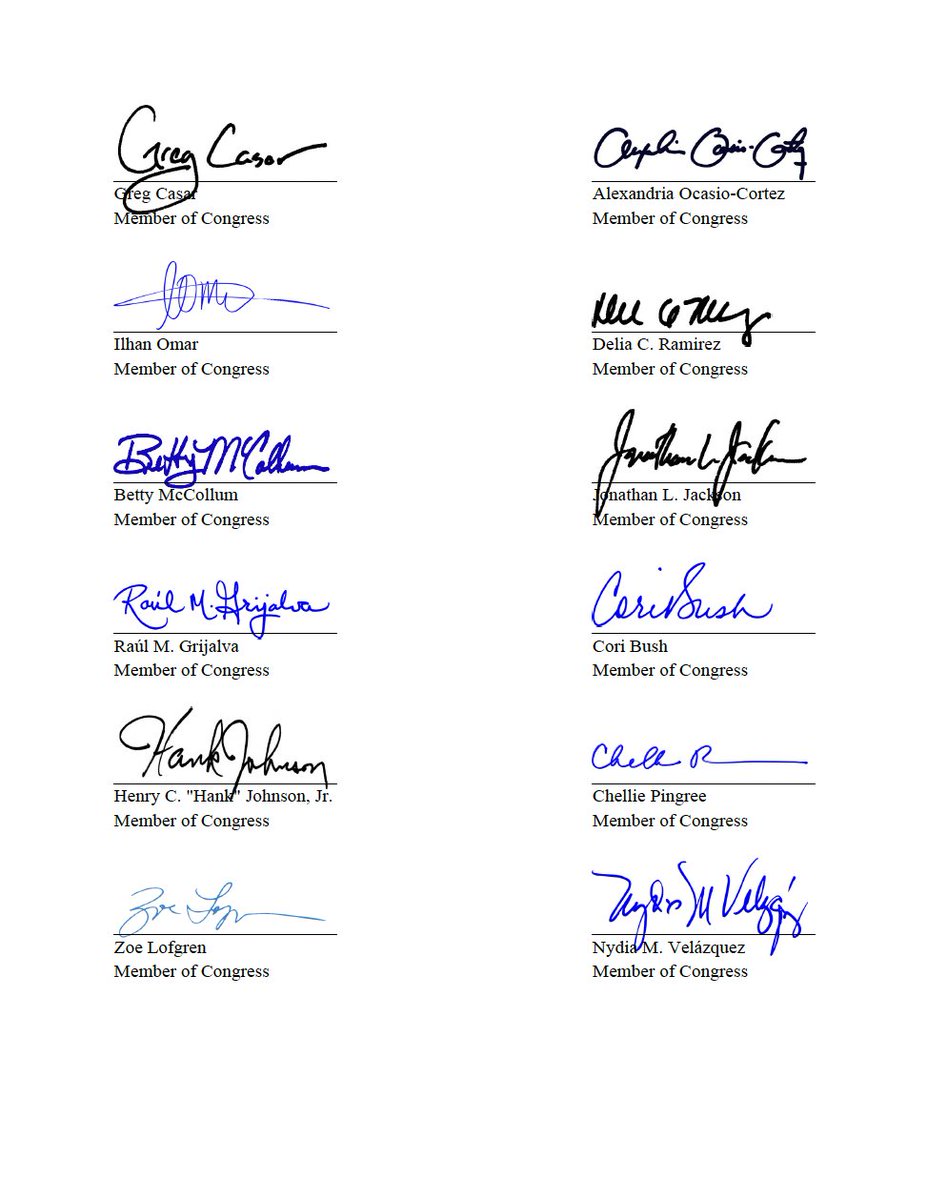 Greg Casar
Alexandria Ocasio-Cortez
Greg Casar
Alexandria Ocasio-Cortez
Member of Congress
Member of Congress
Ilhan Omar
Delia C. Ramirez
Member of Congress
Member of Congress
Betty McCollum
Jonathan L. Jackson
Betty McCollum
Jonathan L. Jackson
Member of Congress
Member of Congress
Raúl M. Grijalva
Cori Bush
Raúl M. Grijalva
Cori Bush
Member of Congress
Member of Congress
Hank Johnson
Henry C. "Hank" Johnson, Jr.
Chellie Pingree
Member of Congress
Member of Congress
Nydia M Velázquez
Zoe Lofgren
Nydia M. Velázquez
Member of Congress
Member of Congress